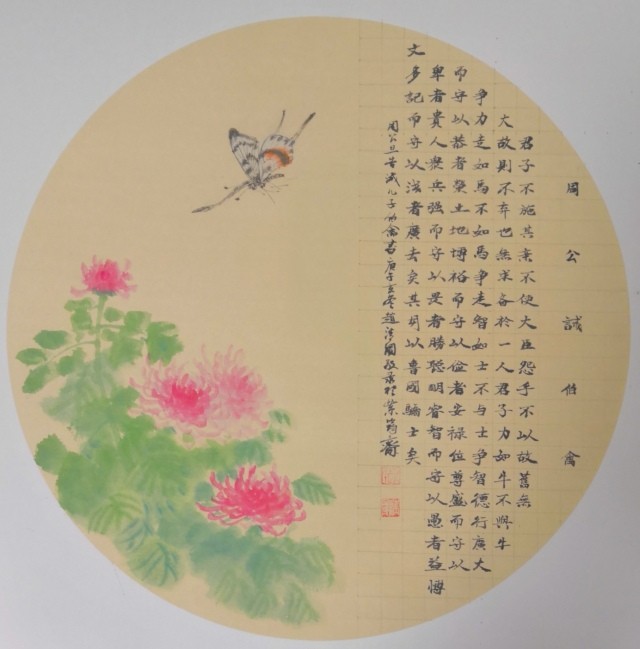 周公誡伯禽
君子不施其亲不使大臣怨乎不以故舊無
大故則不弃也無求备於一人君子力如牛不與牛
争力走如馬不如馬争走智如士不与士争智德行廣大
而守以恭者榮土地博裕而守以俭者安禄位尊盛而守以
卑者貴人衆兵强而守以畏者勝聪明睿智而守以愚者益博
文多記而守以浅者廣去矣其毋以魯國驕士矣
周公旦告诫儿子伯禽書庚子冬趙敬录於紫筠斋